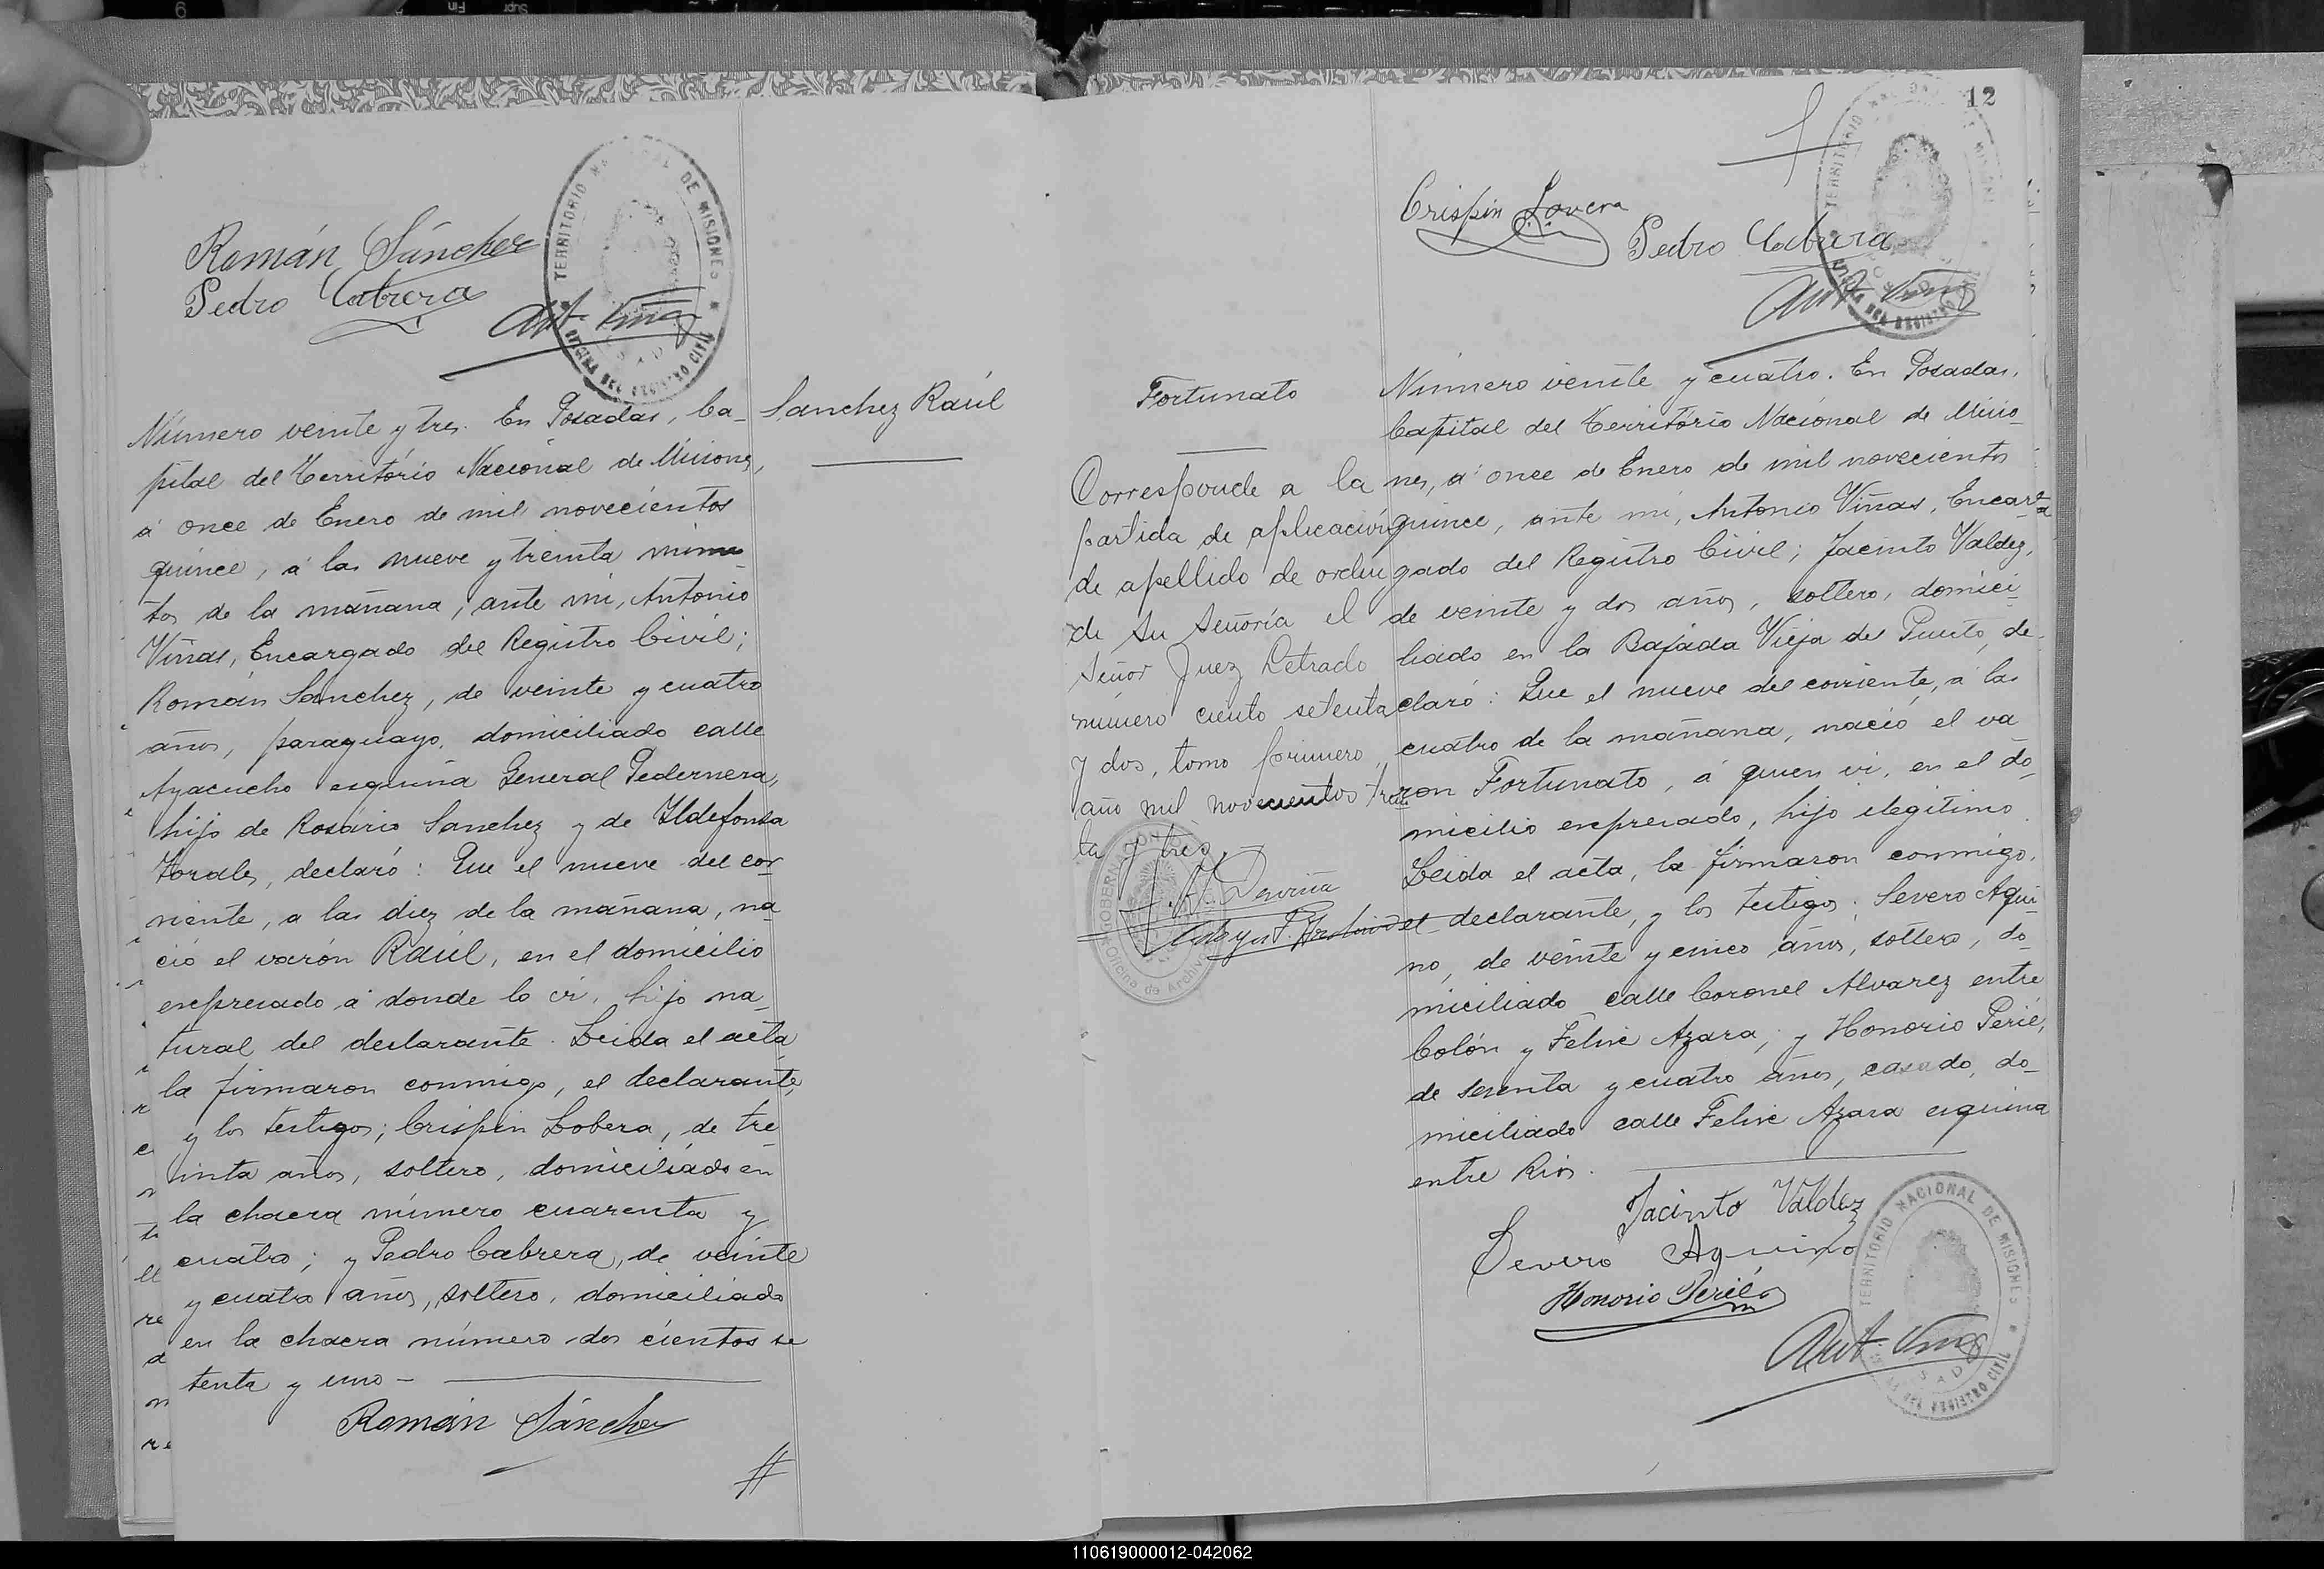 Román Sánchez
Pedro Cabrera
Ant. Viñas
TERRITORIO NACIONAL DE MISIONES
OFICINA DEL REGISTRO CIVIL
Sanchez Raúl
Número veinte y tres. En Posadas, Ca-
pital del Territorio Nacional de Misiones,
á once de Enero de mil novecientos
quince, á las nueve y treinta minu-
tos de la mañana, ante mi, Antonio
Viñas, Encargado del Registro Civil;
Román Sanchez, de veinte y cuatro
años, paraguayo, domiciliado calle
Ayacucho esquina General Pedernera,
hijo de Rosario Sanchez y de Ildefonsa
Torales, declaró: Que el nueve del cor-
riente, a las diez de la mañana, na-
ció el varón Raúl, en el domicilio
expresado á donde lo vi, hijo na-
tural del declarante. Leida el acta
la firmaron conmigo, el declarante,
y los testigos; Crispin Lobera, de tre-
inta años, soltero, domiciliado en
la chacra número cuarenta y
cuatro; y Pedro Cabrera, de veinte
y cuatro años, soltero, domiciliado
en la chacra número dos cientos se
tenta y uno -
Román Sánchez
12
Crispin Lovera
Pedro Cabrera
Ant. Viñas
TERRITORIO NACIONAL DE MISIONES
OFICINA DEL REGISTRO CIVIL
Fortunato
Corresponde a la
partida de aplicación
de apellido de orden
de su señoría el
señor Juez Letrado
número ciento setenta
y dos, tomo primero,
año mil novecientos trein
ta y tres.
GOBERNACION
Oficina de Archivo
Número veinte y cuatro. En Posadas,
Capital del Territorio Nacional de Misio-
nes, á once de Enero de mil novecientos
quince, ante mi, Antonio Viñas, Encar-
gado del Registro Civil; Jacinto Valdez,
de veinte y dos años, soltero, domici-
liado en la Bajada Vieja del Puerto, de-
claró: Que el nueve del corriente, á las
cuatro de la mañana, nació el va
ron Fortunato, á quien vi, en el do-
micilio expresado, hijo ilegitimo.
Leida el acta, la firmaron conmigo,
el declarante, y los testigos; Severo Aqui-
no, de veinte y cinco años, soltero, do-
miciliado calle Coronel Alvarez entre
Colón y Felix Azara; y Honorio Perié,
de sesenta y cuatro años, casado, do-
miciliado calle Felix Azara esquina
entre Rios.
Jacinto Valdez
Severo Aquino
Honorio Perié
Ant. Viñas
TERRITORIO NACIONAL DE MISIONES
REGISTRO CIVIL
110619000012-042062